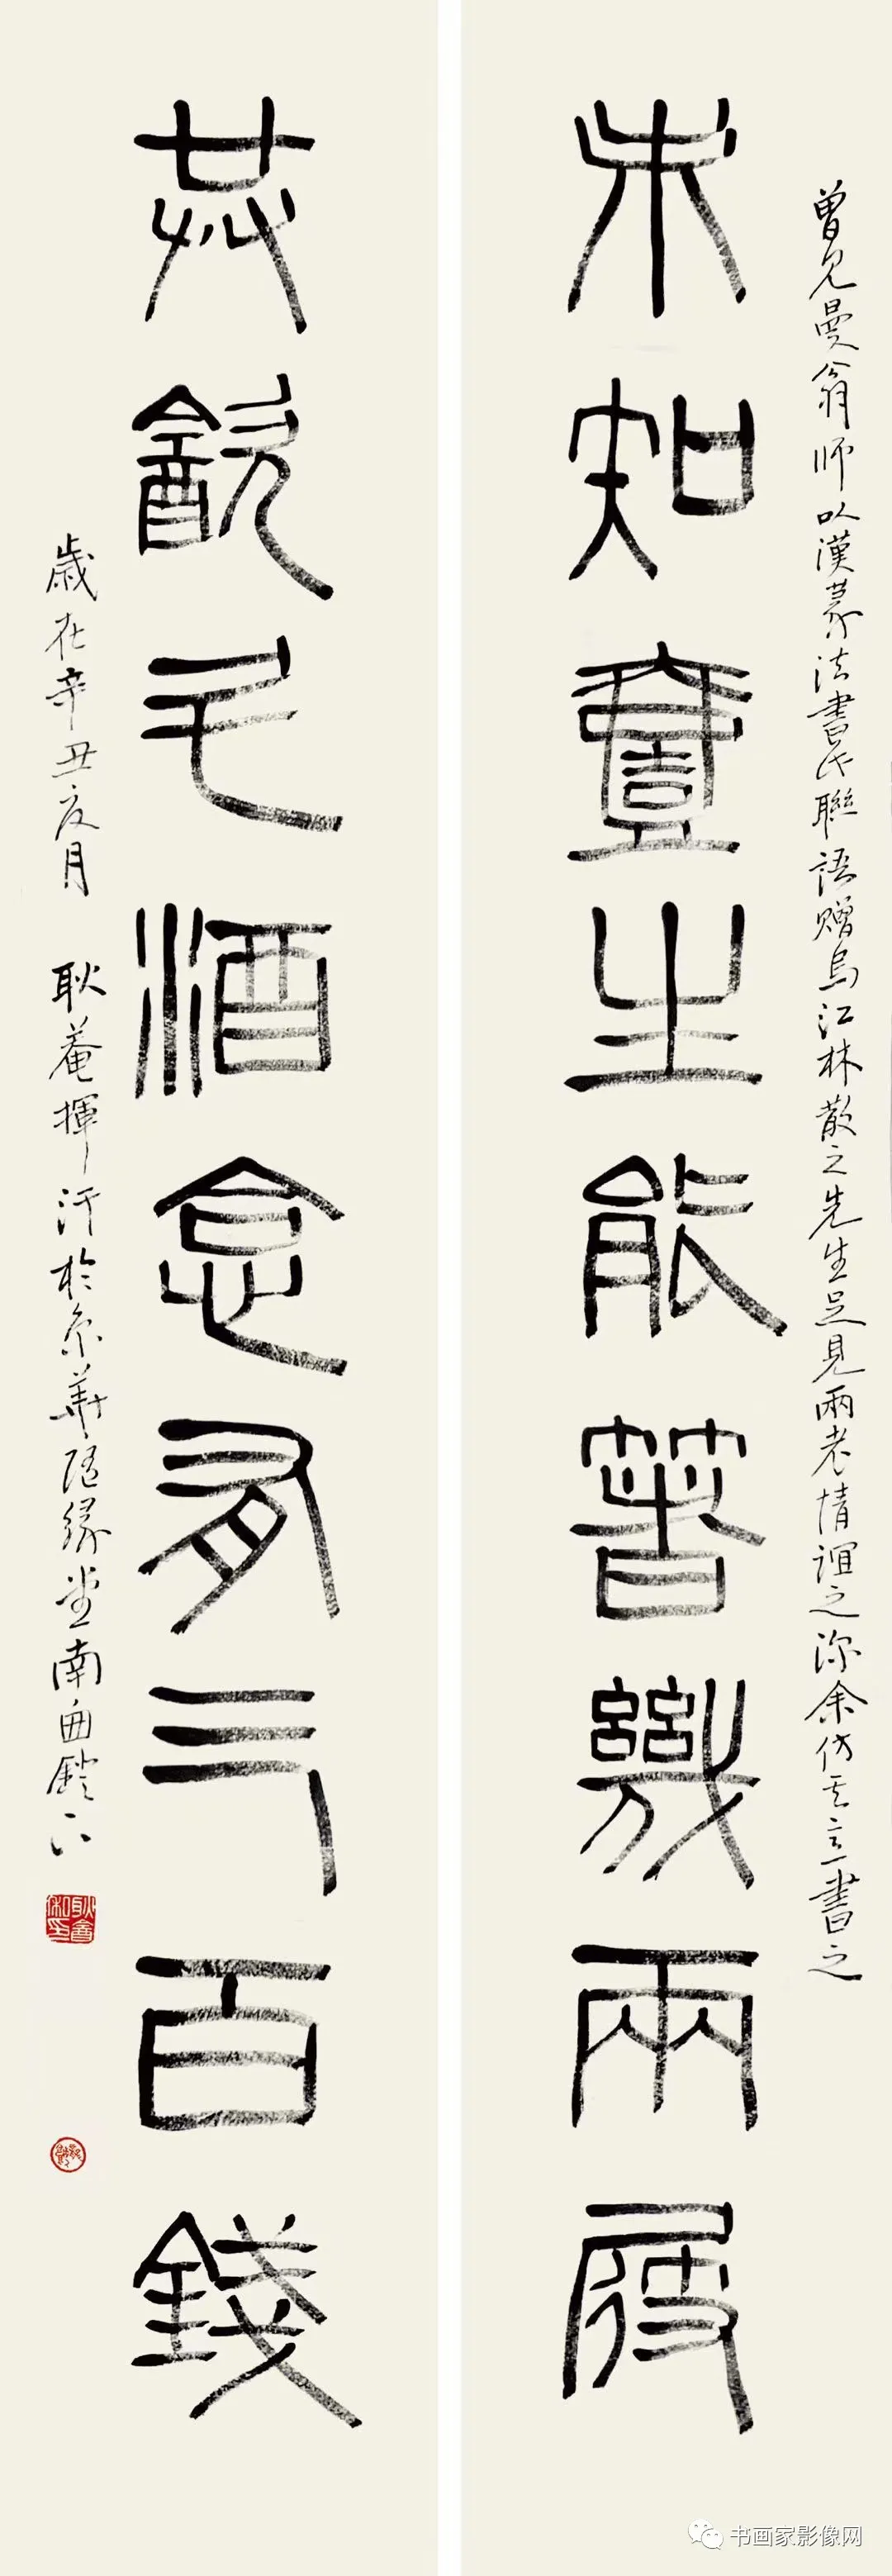 曾見曼翁師以漢篆法書此聯語贈烏江林散之先生足見兩老情誼之深余仿其意書之
未知臺生能著幾兩屐
共飲一斗酒恰有三百錢
歲在辛丑亥月 耿菴揮汗於京華隨緣堂南窗鐙下
书画家影像网